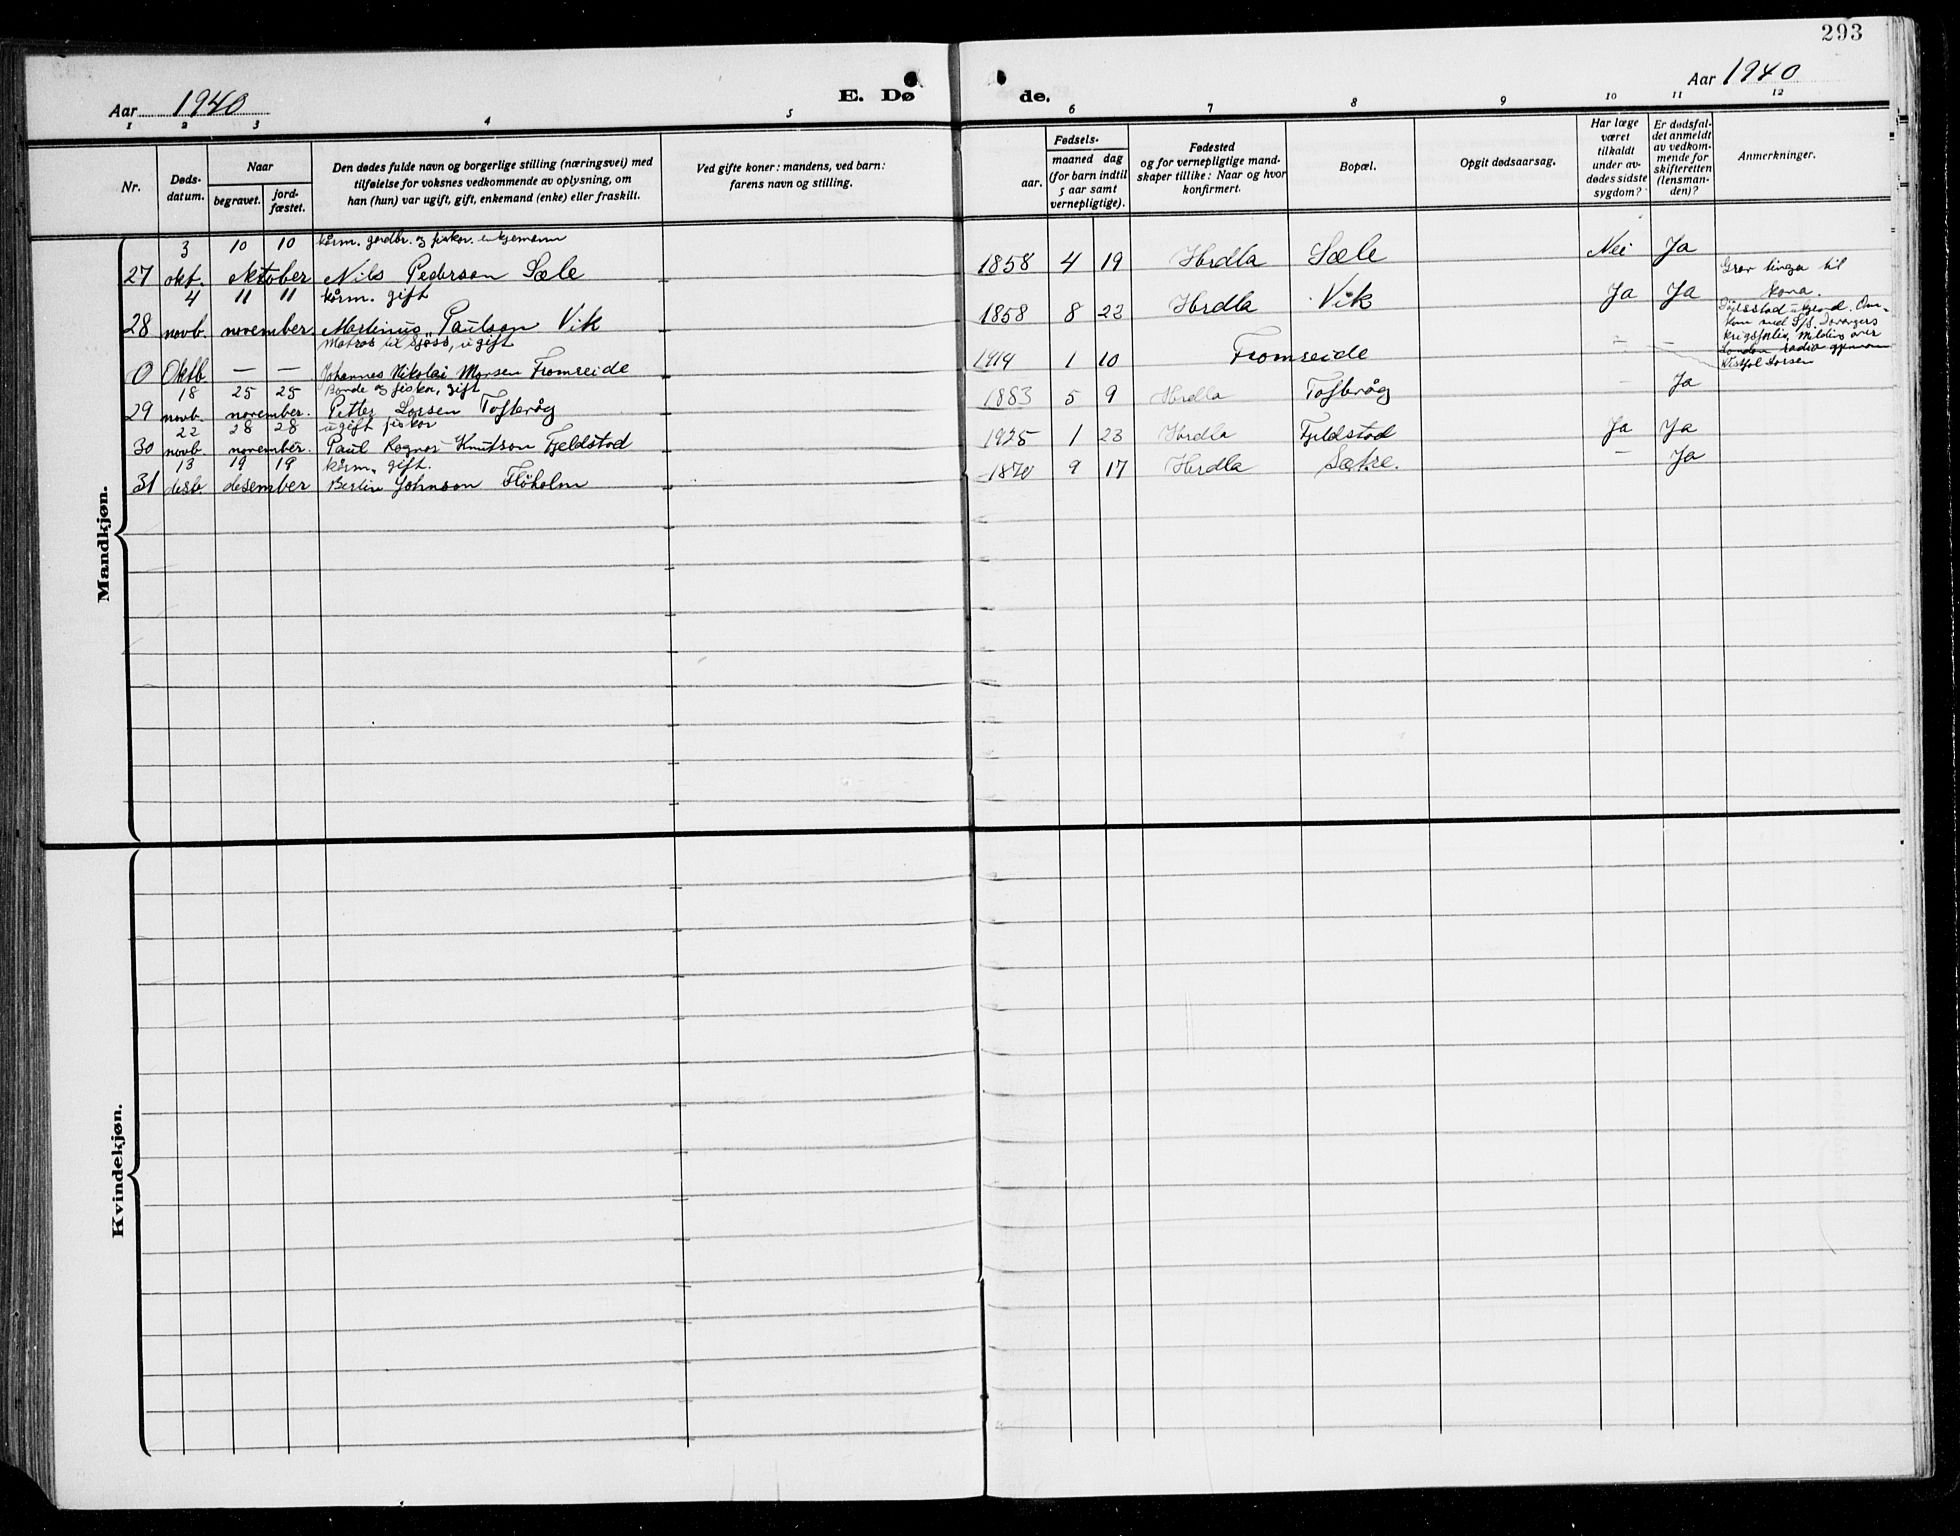 293
Aar 1940
E. Dø
de.
Aar 1940
1 2 3 4 5 6 7 8 9 10 11 12
Nr.
Døds-
datum.
Naar
begravet.
jord-
fæstet.
Den dødes fulde navn og borgerlige stilling (næringsvei) med
tilføielse for voksnes vedkommende av oplysning, om
han (hun) var ugift, gift, enkemand (enke) eller fraskilt.
Ved gifte koner: mandens, ved barn:
farens navn og stilling.
Fødsels-
aar.
maaned dag
(for barn indtil
5 aar samt
vernepligtige).
Fødested
og for vernepligtige mand-
skaper tillike: Naar og hvor
konfirmert.
Bopæl.
Opgit dødsaarsag.
Har læge
været
tilkaldt
under av-
dødes sidste
sygdom?
Er dødsfal-
det anmeldt
av vedkom-
mende for
skifteretten
(lensman-
den)?
Anmerkninger.
Mandkjøn.
3 10 10 kårm. gardbr. og fiskar. enkjemann
27 okt. oktober Nils Pederson Sæle 1858 4 19 Herdla Sæle Nei Ja
4 11 11 kårm. gift
28 novb. november Martinus Paulson Vik 1858 8 22 Herdla Vik Ja Ja Grav tinga til
kona.
Matros til sjøss, ugift
0 Oktb. — — Johannes Nikolai Monsen Fromreide 1919 1 10 Fromreide — —
krigsforlis, Melding over
London radio gjennom
18 25 25 Bonde og fiskar, gift
29 novb. november. Petter Larsen Tofteråg 1883 5 9 Herdla Tofteråg — Ja
22 28 28 ugift fiskar
30 novb november. Paul Ragnar Knutson Fjeldstad 1925 1 23 Herdla Fjeldstad Ja Ja
13 19 19 kårm. gift.
31 desb. desember Johnson Fløholm 1870 9 17 Herdla Sætre. — Ja
Kvindekjøn.